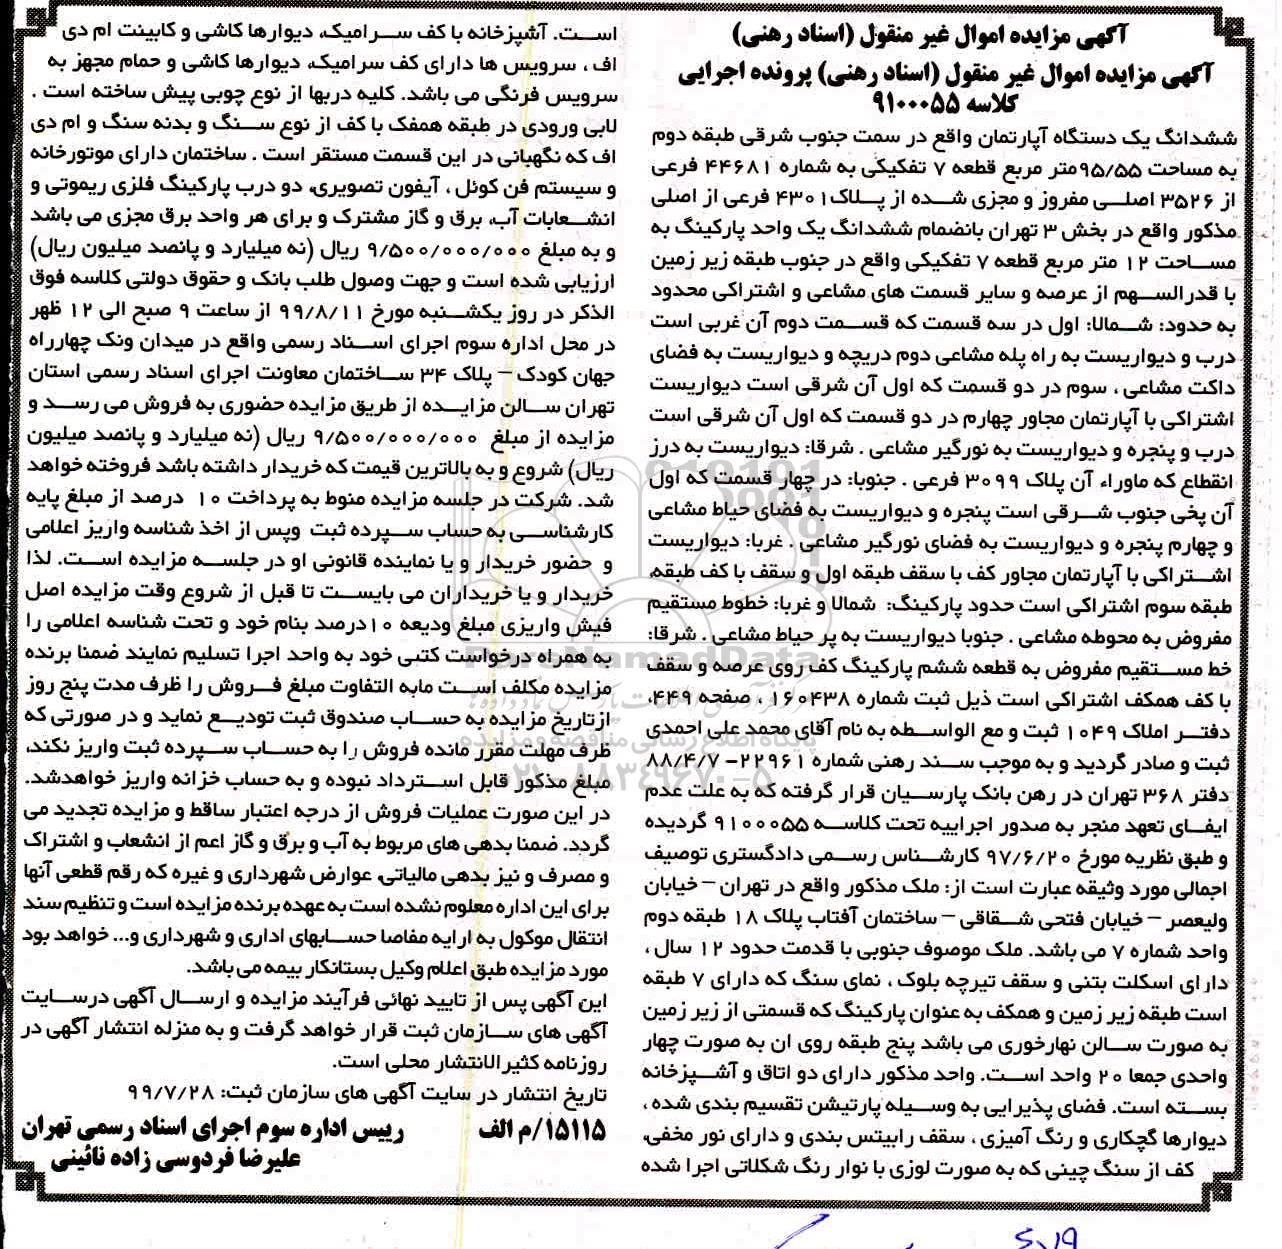 آگهی مزایده اموال غیر منقول (اسناد رهنی)
آگهی مزایده اموال غیر منقول (اسناد رهنی) پرونده اجرایی
کلاسه ۹۱۰۰۰۵۵
ششدانگ یک دستگاه آپارتمان واقع در سمت جنوب شرقی طبقه دوم
به مساحت ۹۵/۵۵متر مربع قطعه ۷ تفکیکی به شماره ۴۴۶۸۱ فرعی
از ۳۵۲۶ اصلی مفروز و مجزی شده از پلاک۴۳۰۱ فرعی از اصلی
مذکور واقع در بخش ۳ تهران بانضمام ششدانگ یک واحد پارکینگ به
مساحت ۱۲ متر مربع قطعه ۷ تفکیکی واقع در جنوب طبقه زیر زمین
با قدرالسهم از عرصه و سایر قسمت های مشاعی و اشتراکی محدود
به حدود: شمالا: اول در سه قسمت که قسمت دوم آن غربی است
درب و دیواریست به راه پله مشاعی دوم دریچه و دیواریست به فضای
داکت مشاعی ، سوم در دو قسمت که اول آن شرقی است دیواریست
اشتراکی با آپارتمان مجاور چهارم در دو قسمت که اول آن شرقی است
درب و پنجره و دیواریست به نورگیر مشاعی . شرقا: دیواریست به درز
انقطاع که ماوراء آن پلاک ۳۰۹۹ فرعی . جنوبا: در چهار قسمت که اول
آن پخی جنوب شرقی است پنجره و دیواریست به فضای حیاط مشاعی
و چهارم پنجره و دیواریست به فضای نورگیر مشاعی . غربا: دیواریست
اشتراکی با آپارتمان مجاور کف با سقف طبقه اول و سقف با کف طبقه،
طبقه سوم اشتراکی است حدود پارکینگ: شمالا و غربا: خطوط مستقیم
مفروض به محوطه مشاعی . جنوبا دیواریست به پر حیاط مشاعی . شرقا:
خط مستقیم مفروض به قطعه ششم پارکینگ کف روی عرصه و سقف
با کف همکف اشتراکی است ذیل ثبت شماره ۱۶۰۴۳۸ ، صفحه ۴۴۹،
دفتر املاک ۱۰۴۹ ثبت و مع الواسطه به نام آقای محمد علی احمدی
ثبت و صادر گردید و به موجب سند رهنی شماره ۲۲۹۶۱- ۸۸/۴/۷
دفتر ۳۶۸ تهران در رهن بانک پارسیان قرار گرفته که به علت عدم
ایفای تعهد منجر به صدور اجراییه تحت کلاسه ۹۱۰۰۰۵۵ گردیده
و طبق نظریه مورخ ۹۷/۶/۲۰ کارشناس رسمی دادگستری توصیف
اجمالی مورد وثیقه عبارت است از: ملک مذکور واقع در تهران – خیابان
ولیعصر – خیابان فتحی شقاقی – ساختمان آفتاب پلاک ۱۸ طبقه دوم
واحد شماره ۷ می باشد. ملک موصوف جنوبی با قدمت حدود ۱۲ سال ،
دارای اسکلت بتنی و سقف تیرچه بلوک ، نمای سنگ که دارای ۷ طبقه
است طبقه زیر زمین و همکف به عنوان پارکینگ که قسمتی از زیر زمین
به صورت سالن نهارخوری می باشد پنج طبقه روی ان به صورت چهار
واحدی جمعا ۲۰ واحد است. واحد مذکور دارای دو اتاق و آشپزخانه
بسته است. فضای پذیرایی به وسیله پارتیشن تقسیم بندی شده ،
دیوارها گچکاری و رنگ آمیزی ، سقف رابیتس بندی و دارای نور مخفی،
کف از سنگ چینی که به صورت لوزی با نوار رنگ شکلاتی اجرا شده
است. آشپزخانه با کف سرامیک، دیوارها کاشی و کابینت ام دی
اف ، سرویس ها دارای کف سرامیک، دیوارها کاشی و حمام مجهز به
سرویس فرنگی می باشد. کلیه دربها از نوع چوبی پیش ساخته است .
لابی ورودی در طبقه همفک با کف از نوع سنگ و بدنه سنگ و ام دی
اف که نگهبانی در این قسمت مستقر است . ساختمان دارای موتورخانه
و سیستم فن کوئل ، آیفون تصویری، دو درب پارکینگ فلزی ریموتی و
انشعابات آب، برق و گاز مشترک و برای هر واحد برق مجزی می باشد
و به مبلغ ۹/۵۰۰/۰۰۰/۰۰۰ ریال (نه میلیارد و پانصد میلیون ریال)
ارزیابی شده است و جهت وصول طلب بانک و حقوق دولتی کلاسه فوق
الذکر در روز یکشنبه مورخ ۹۹/۸/۱۱ از ساعت ۹ صبح الی ۱۲ ظهر
در محل اداره سوم اجرای اسناد رسمی واقع در میدان ونک چهارراه
جهان کودک – پلاک ۳۴ ساختمان معاونت اجرای اسناد رسمی استان
تهران سالن مزایده از طریق مزایده حضوری به فروش می رسد و
مزایده از مبلغ ۹/۵۰۰/۰۰۰/۰۰۰ ریال (نه میلیارد و پانصد میلیون
ریال) شروع و به بالاترین قیمت که خریدار داشته باشد فروخته خواهد
شد. شرکت در جلسه مزایده منوط به پرداخت ۱۰ درصد از مبلغ پایه
کارشناسی به حساب سپرده ثبت وپس از اخذ شناسه واریز اعلامی
و حضور خریدار و یا نماینده قانونی او در جلسه مزایده است. لذا
خریدار و یا خریداران می بایست تا قبل از شروع وقت مزایده اصل
فیش واریزی مبلغ ودیعه ۱۰درصد بنام خود و تحت شناسه اعلامی را
به همراه درخواست کتبی خود به واحد اجرا تسلیم نمایند ضمنا برنده
مزایده مکلف است مابه التفاوت مبلغ فروش را ظرف مدت پنج روز
ازتاریخ مزایده به حساب صندوق ثبت تودیع نماید و در صورتی که
ظرف مهلت مقرر مانده فروش را به حساب سپرده ثبت واریز نکند،
مبلغ مذکور قابل استرداد نبوده و به حساب خزانه واریز خواهدشد.
در این صورت عملیات فروش از درجه اعتبار ساقط و مزایده تجدید می
گردد. ضمنا بدهی های مربوط به آب و برق و گاز اعم از انشعاب و اشتراک
و مصرف و نیز بدهی مالیاتی، عوارض شهرداری و غیره که رقم قطعی آنها
برای این اداره معلوم نشده است به عهده برنده مزایده است و تنظیم سند
انتقال موکول به ارایه مفاصا حسابهای اداری و شهرداری و... خواهد بود
مورد مزایده طبق اعلام وکیل بستانکار بیمه می باشد.
این آگهی پس از تایید نهائی فرآیند مزایده و ارسال آگهی درسایت
آگهی های سازمان ثبت قرار خواهد گرفت و به منزله انتشار آگهی در
روزنامه کثیرالانتشار محلی است.
تاریخ انتشار در سایت آگهی های سازمان ثبت: ۹۹/۷/۲۸
۱۵۱۱۵/م الف رییس اداره سوم اجرای اسناد رسمی تهران
علیرضا فردوسی زاده نائینی
ParsNamadData
پایگاه اطلاع رسانی مناقصه و مزایده
۰۲۱-۸۸۳۴۹۶۷۰-۵